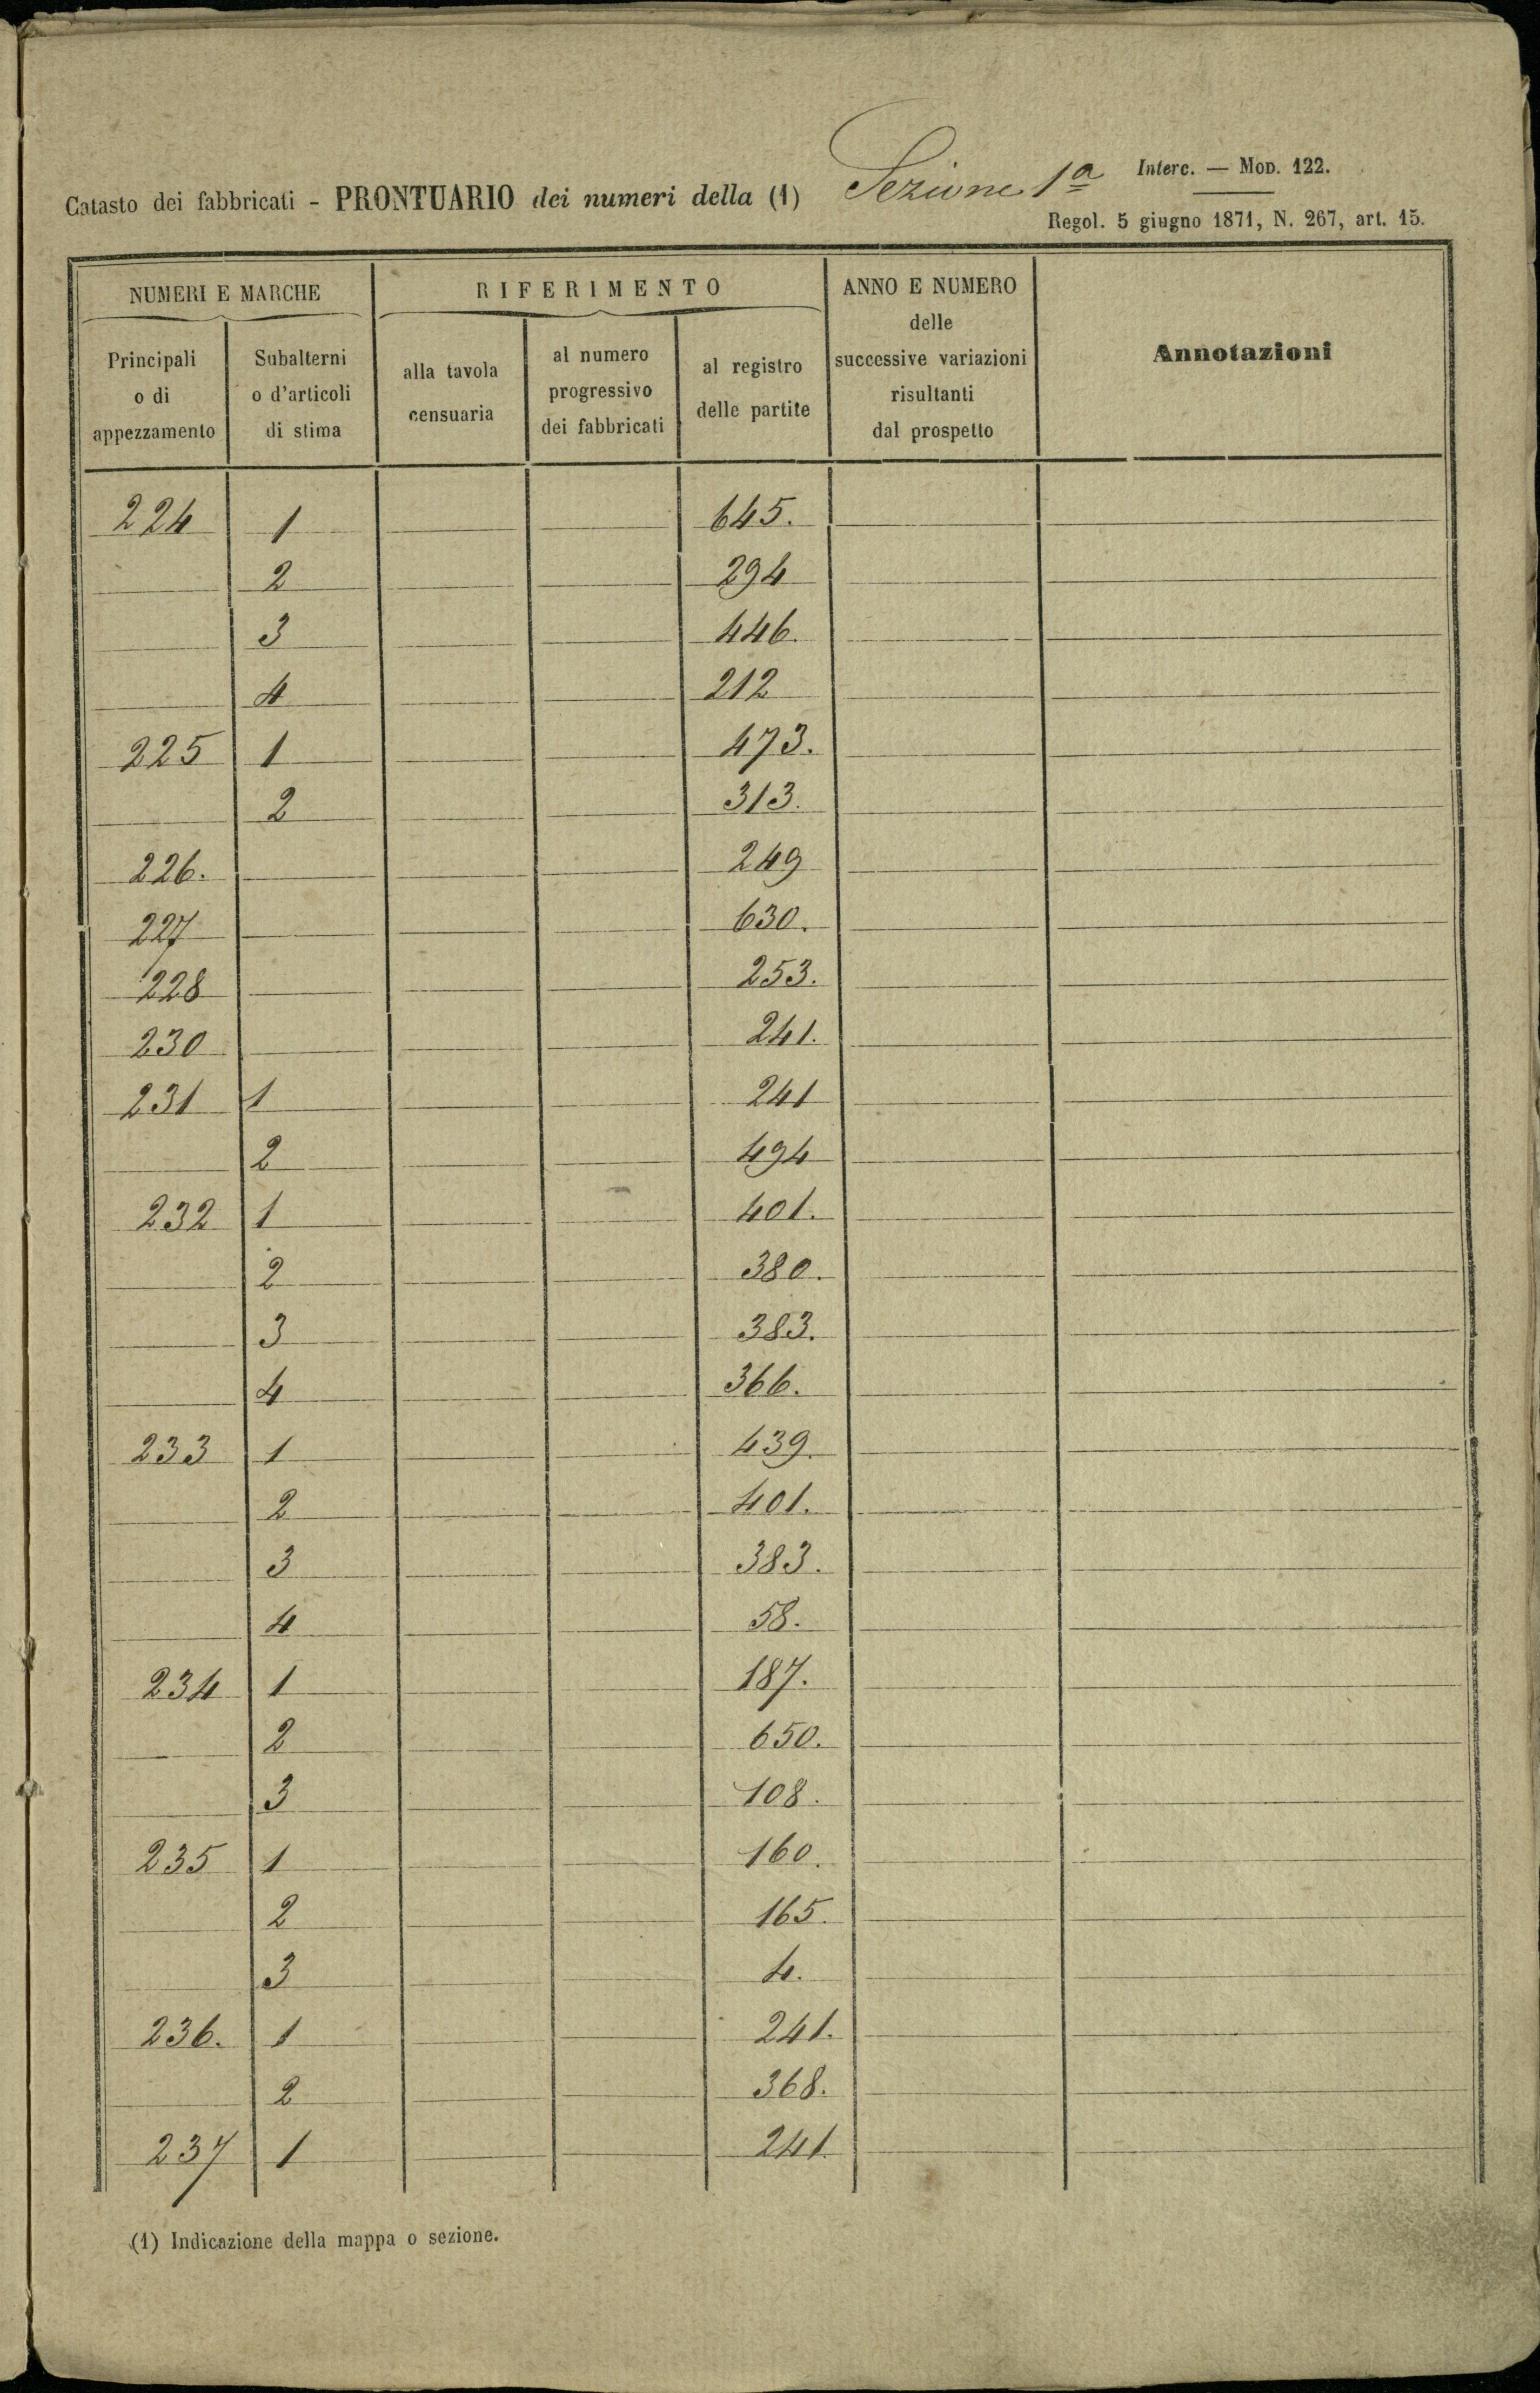 Catasto dei fabbricati - PRONTUARIO dei numeri della (1) Sezione 1a
Interc. — Mod. 122.
Regol. 5 giugno 1871, N. 267, art. 15.
NUMERI E MARCHE
RIFERIMENTO
ANNO E NUMERO
delle
successive variazioni
risultanti
dal prospetto
Annotazioni
Principali
o di
appezzamento
Subalterni
o d'articoli
di stima
alla tavola
censuaria
al numero
progressivo
dei fabbricati
al registro
delle partite
224 1 645.
2 294
3 446.
4 212
225 1 473.
2 313.
226. 249
227 630.
228 253.
230 241.
231 1 241
2 494
232 1 401.
2 380.
3 383.
4 366.
233 1 439.
2 401.
3 383.
4 58.
234 1 187.
2 650.
3 108.
235 1 160.
2 165.
3 4.
236. 1 241.
2 368.
237 1 241.
(1) Indicazione della mappa o sezione.